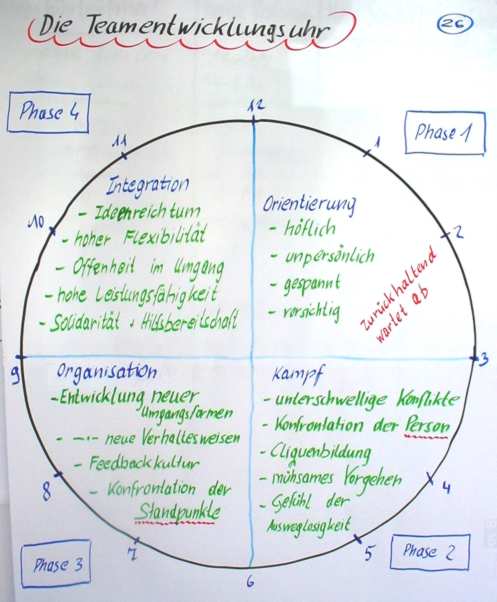 Die Teamentwicklungsuhr
26
Phase 4
12
Phase 1
11
1
Integration
- Ideenreichtum
- hoher Flexibilität
- Offenheit im Umgang
- hohe Leistungsfähigkeit
- Solidarität + Hilfsbereitschaft
10
Orientierung
- höflich
- unpersönlich
- gespannt
- vorsichtig
2
zurückhaltend
wartet ab
9
3
Organisation
- Entwicklung neuer
Umgangsformen
- -"- neue Verhaltesweisen
- Feedbackkultur
- Konfrontation der
Standpunkte
8
Kampf
- unterschwellige Konflikte
- Konfrontation der Person
- Cliquenbildung
- mühsames Vorgehen
- Gefühl der
Ausweglosigkeit
4
7
5
Phase 3
6
Phase 2